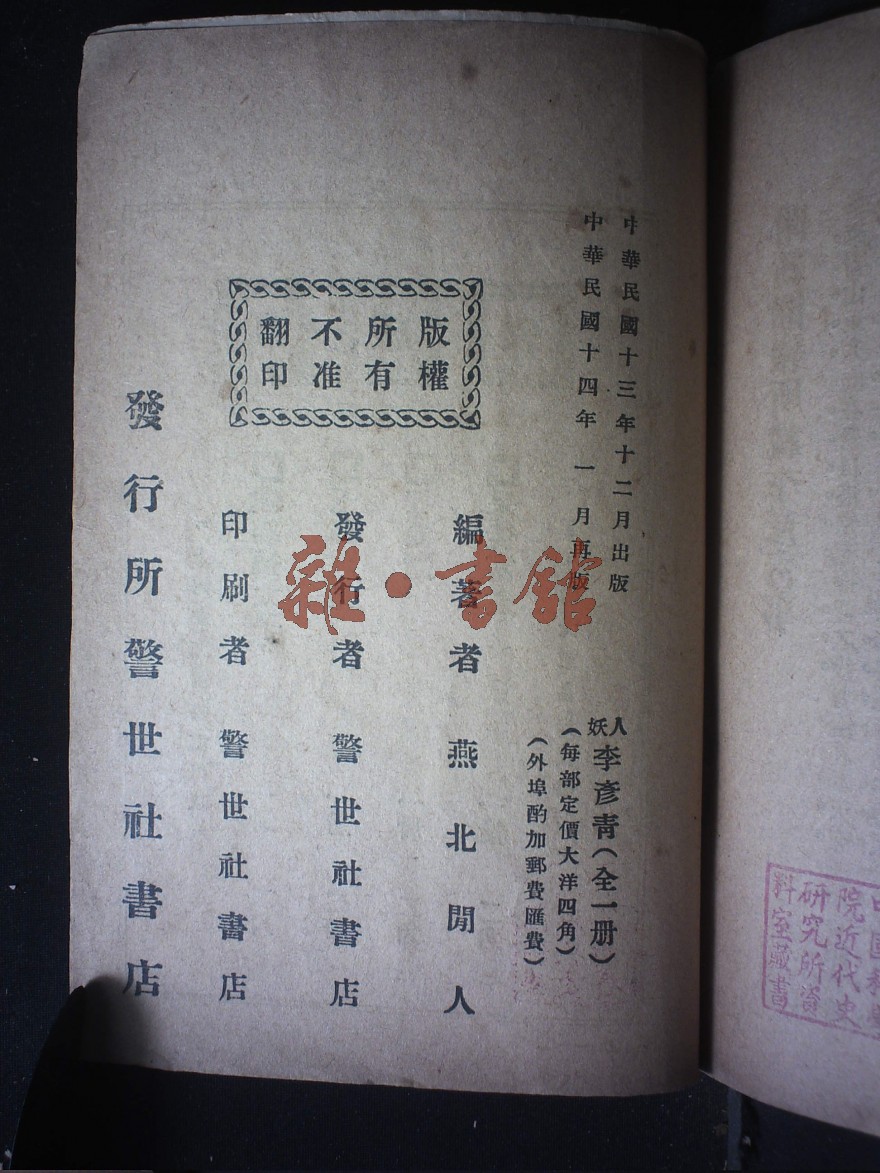 中華民國十三年十二月出版
中華民國十四年一月再版
人妖李彥青(全一册)
(每部定價大洋四角)
(外埠酌加郵費匯費)
版權
所有
不准
翻印
編著者燕北閒人
發行者警世社書店
印刷者警世社書店
發行所警世社書店
雜·書館
中國科學
院近代史
研究所資
料室藏書